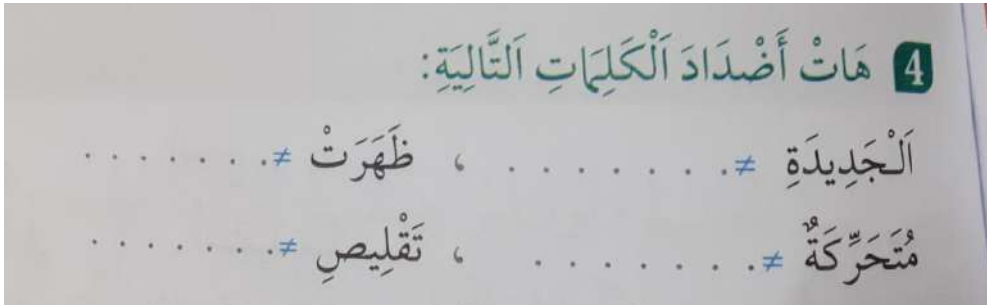 4 هَاتْ أَضْدَادَ اَلْكَلِمَاتِ اَلتَّالِيَةِ:
اَلْجَدِيدَةِ ≠ . . . . . . . . ، ظَهَرَتْ ≠ . . . . . . . .
مُتَحَرِّكَةٌ ≠ . . . . . . . . ، تَقْلِيصِ ≠ . . . . . . . .